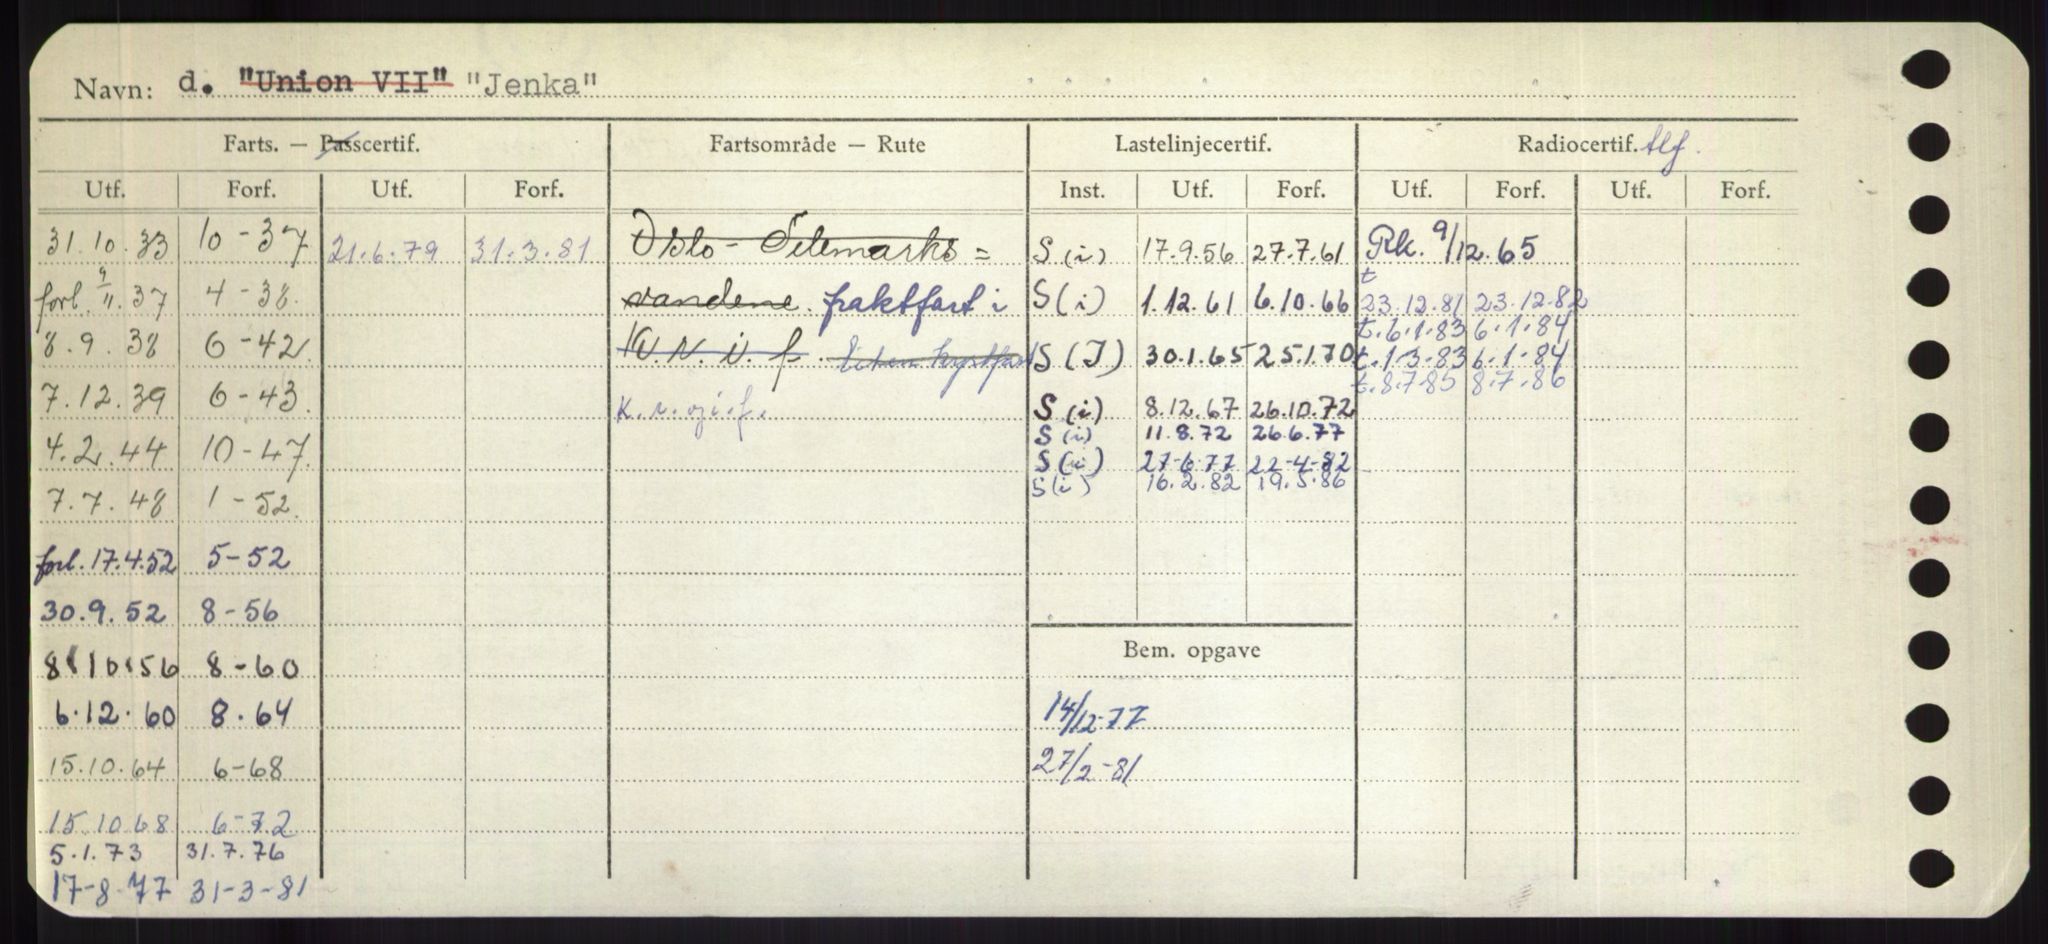 Navn: d. "Union VII" "Jenka"
Farts. — Passcertif. Fartsområde — Rute Lastelinjecertif. Radiocertif. tlf.
Utf. Forf. Utf. Forf. Inst. Utf. Forf. Utf. Forf. Utf. Forf.
31.10.33 10-37 21.6.79 31.3.81 Oslo-Telemarks= S(i) 17.9.56 27.7.61 Rk. 9/12.65
forl. 9/11.37 4-38. vandene. fraktfart i S(i) 1.12.61 6.10.66 t 23.12.81 23.12.82
t. 6.1.83 6.1.84
8.9.38 6-42. K.N.i.f. liten kystfart S(I) 30.1.65 25.1.70 t. 1.3.83 6.1.84
t. 8.7.85 8.7.86
7.12.39 6-43. K.n.oji.f. S(i) 8.12.67 26.10.72
S(i) 11.8.72 26.6.77
4.2.44 10-47. S(i) 27-6-77 22-4-82
S(i) 16.2.82 19.5.86
7.7.48 1-52.
forl. 17.4.52 5-52
30.9.52 8-56
Bem. opgave
8.10.56 8-60
6.12.60 8.64 14/12-77
15.10.64 6-68 27/2-81
15.10.68 6-72
5.1.73 31.7.76
17-8-77 31-3-81